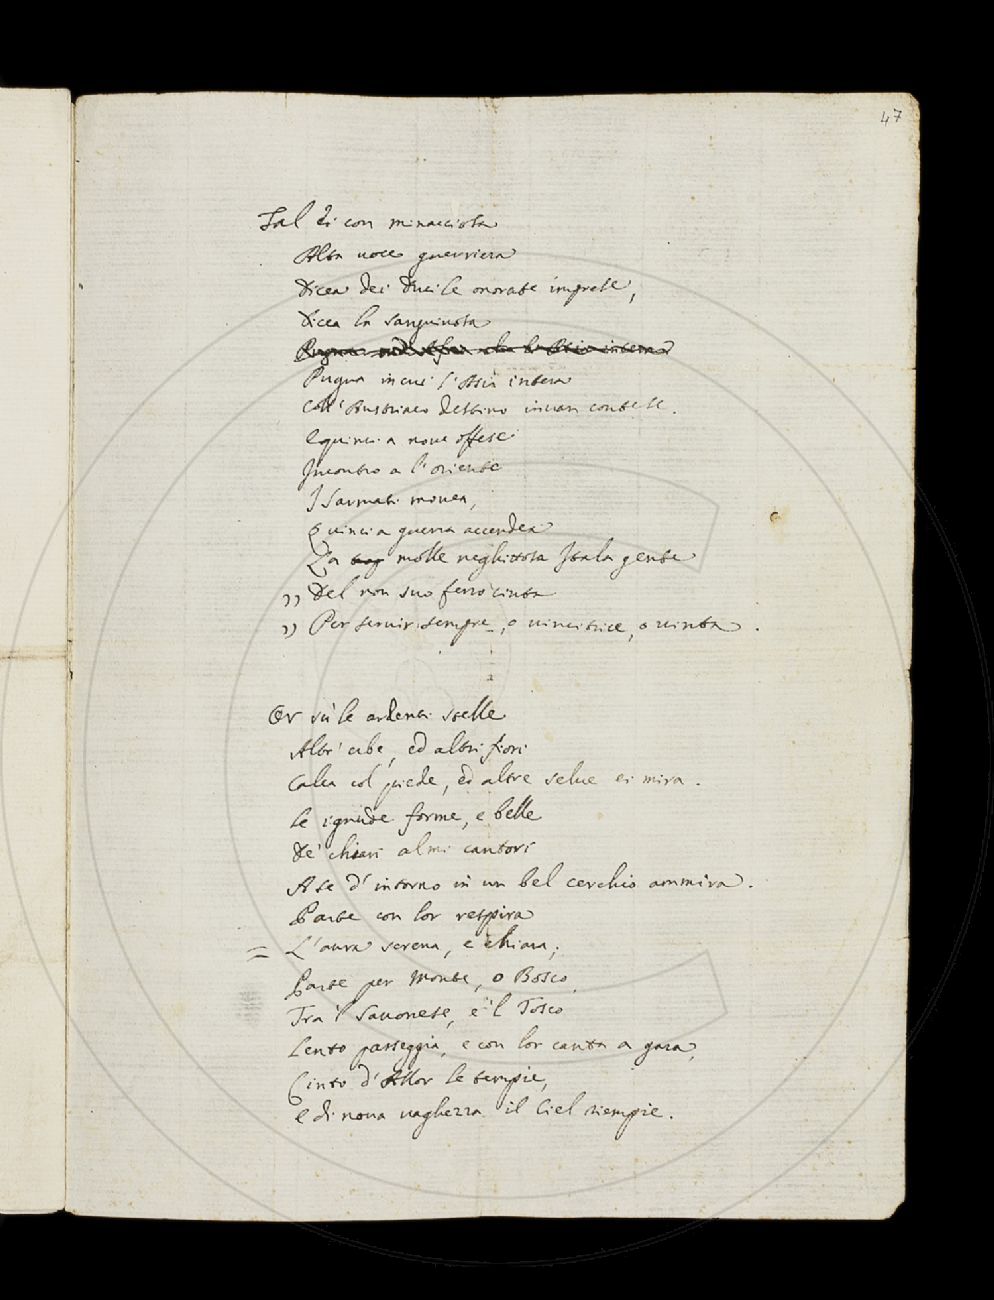 47
Tal dì con minacciosa
Alta uoce guerriera
Dicea dei Duci le onorate imprese,
Dicea la sanguinosa
Pugna in cui l'Asia intera
Coll'Austriaco destino inuan contese.
E quinci a noue offese
Incontro a l'oriente
I Sarmati mouea,
Quinci a guerra accendea
La molle neghittosa Itala gente
„ Del non suo ferro cinta
„ Per seruir sempre, o uincitrice, o uinta.
Or sù le ardenti stelle
Altr'erbe, ed altri fiori
Calca col piede, ed altre selue ei mira.
Le ignude forme, e belle
De' chiari almi cantori
A se d'intorno in un bel cerchio ammira.
Parte con lor respira
= L'aura serena, e chiara;
Parte per Monte, o Bosco,
Tra 'l Sauonese, e 'l Tosco
Lento passeggia, e con lor canta a gara,
Cinto d'Allor le tempie,
e di noua uaghezza il Ciel riempie.